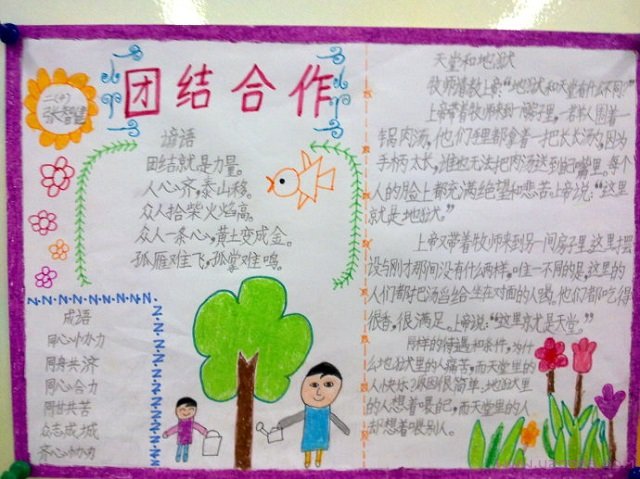 二(4)
张智慧
团结合作
谚语
团结就是力量。
人心齐,泰山移。
众人拾柴火焰高。
众人一条心,黄土变成金。
孤雁难飞,孤掌难鸣。
成语
同心协力
同舟共济
同心合力
同甘共苦
众志成城
齐心协力
天堂和地狱
牧师请教上帝:“地狱和天堂有什么不同?”
上帝带着牧师来到一间房子里,一群人围着一
锅肉汤,他们手里都拿着一把长长汤勺,因为
手柄太长,谁也无法把肉汤送到自己嘴里,每个
人的脸上都充满绝望和悲苦。上帝说:“这里
就是地狱。”
上帝又带着牧师来到另一间房子里,这里摆
设与刚才那间没有什么两样,唯一不同的是,这里的
人们都把汤舀给坐在对面的人喝。他们都吃得
很香,很满足。上帝说:“这里就是天堂。”
同样的待遇和条件,为什
么地狱里的人痛苦,而天堂里的
人快乐?原因很简单:地狱里
的人想着喂自己,而天堂里的人
却想着喂别人。